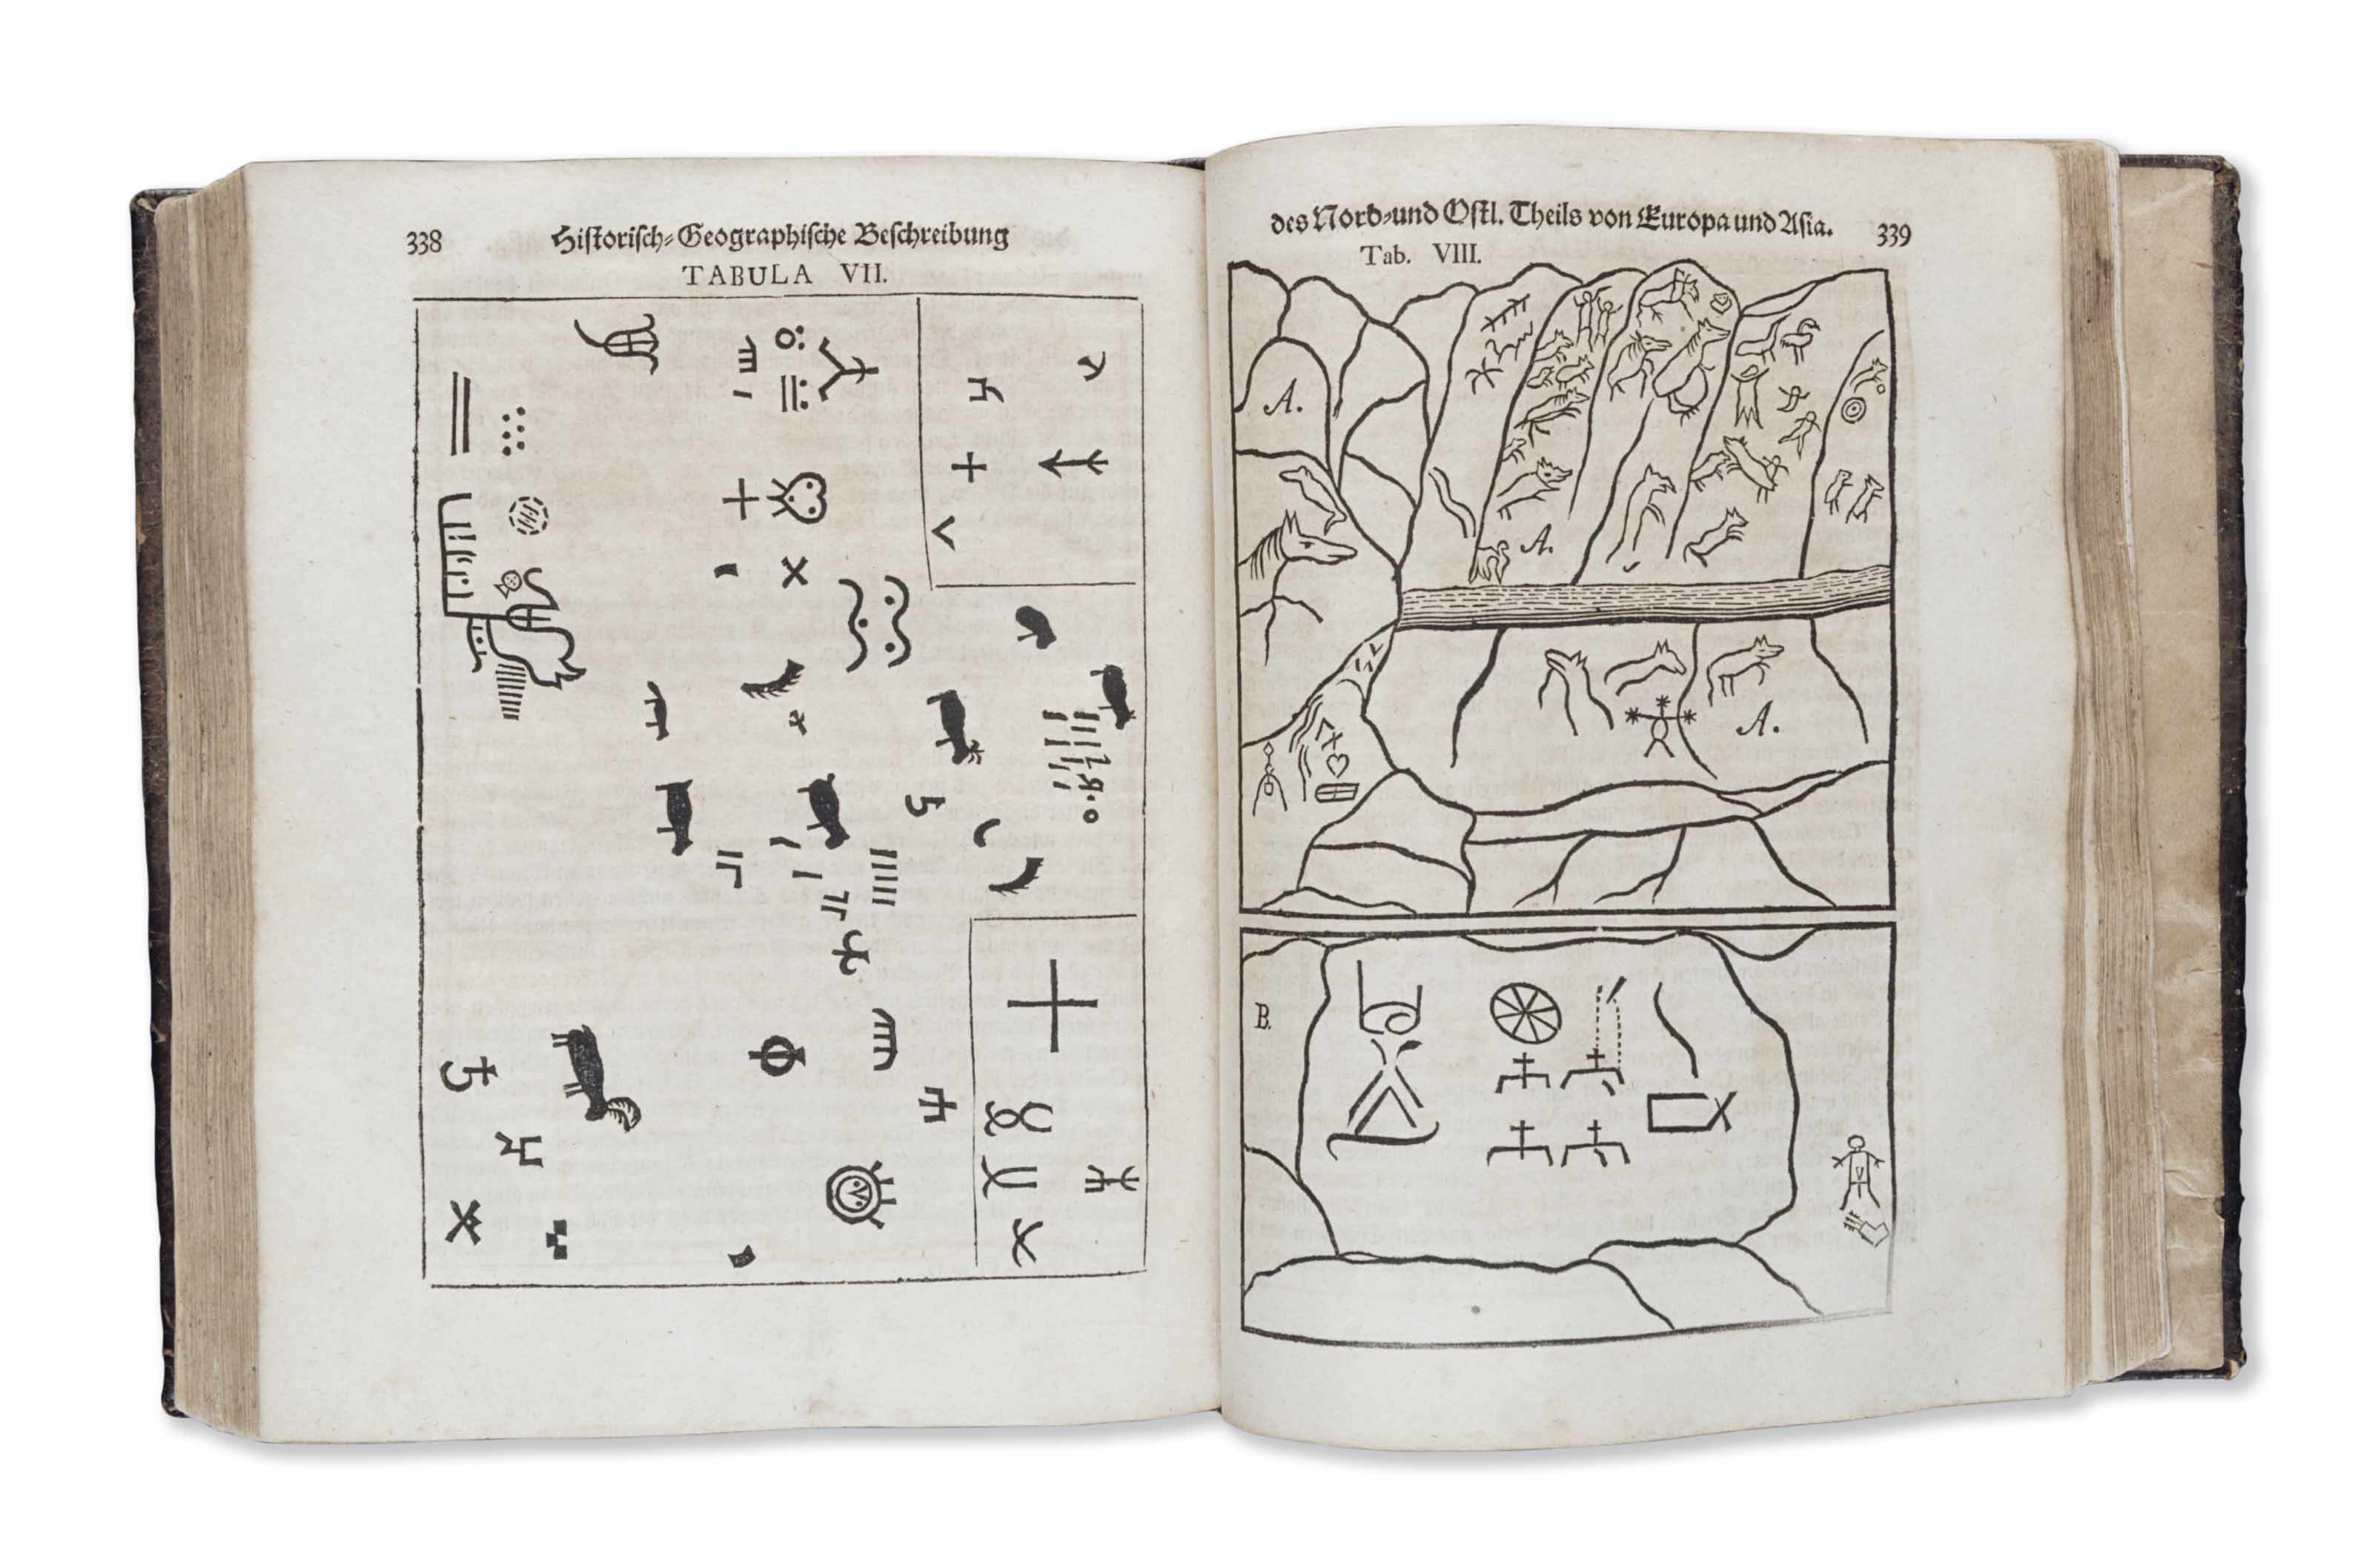 338 Historisch-Geographische Beschreibung
TABULA VII.
des Nord-und Ostl. Theils von Europa und Asia. 339
Tab. VIII.
A.
A.
A.
B.